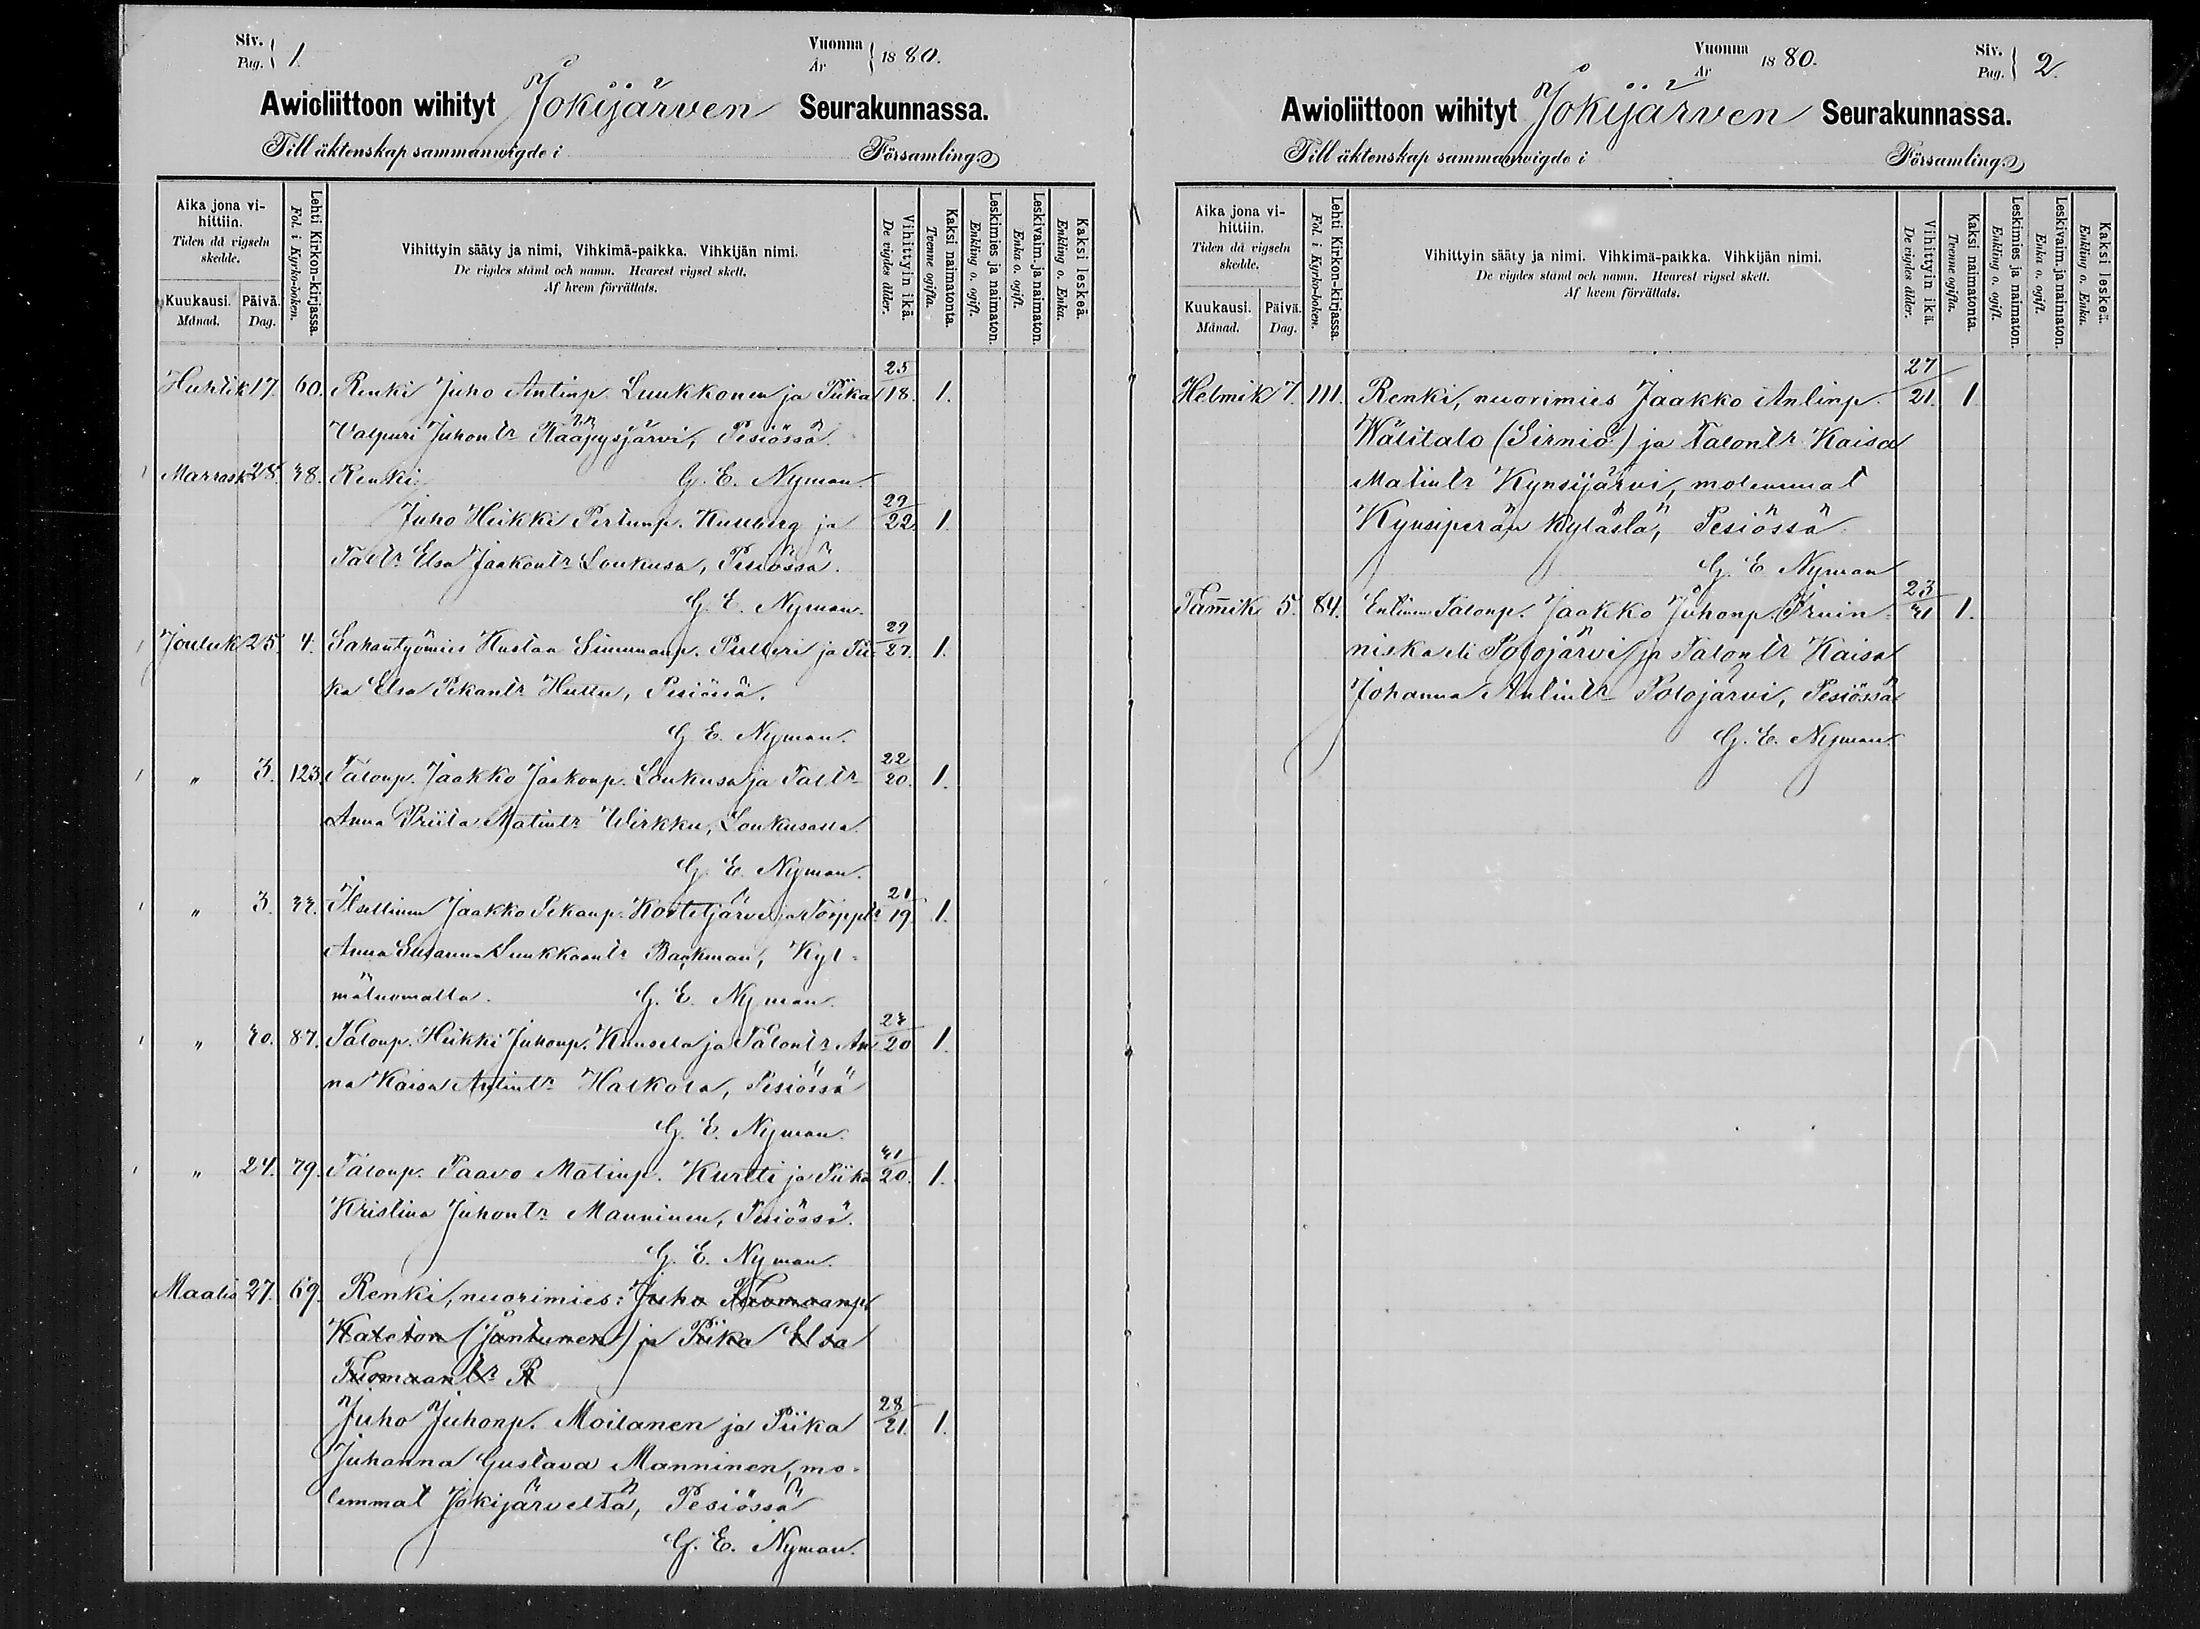 Siv. Pag. 1. Vuonna År 1880.
Awioliittoon wihityt Jokijärven Seurakunnassa.
Till äktenskap sammanwigde i Församling
Aika jona vihittiin. Tiden då vigseln skedde.
Kuukausi. Månad. Päivä. Dag.
Lehti Kirkon-kirjassa. Fol. i Kyrko-boken.
Vihittyin sääty ja nimi, Vihkimä-paikka. Vihkijän nimi.
De vigdes stånd och namn. Hvarest vigsel skett.
Af hvem förrättats.
Vihittyin ikä. De vigdes ålder.
Kaksi naimatonta. Tvenne ogifta.
Leskimies ja naimaton. Enkling o. ogift.
Leskivaim. ja naimaton. Enka o. ogift.
Kaksi leskeä. Enkling o. Enka.
Huhtik 17. 60. Renki Juho Antinp. Luukkonen ja Piika 25/18. 1.
Valpuri Juhontr Rääpysjärvi, Pesiössä.
Marrask 28. 38. Renki G. E. Nyman.
Juho Heikki Pertunp. Kullberg ja 22/22. 1.
Taltr Elsa Jaakontr Loukusa, Pesiössä.
G. E. Nyman.
Jouluk 25. 4. Sahantyömies Kustaa Simunanp. Pelleri ja Pii- 29/27. 1.
ka Elsa Pekantr Huttu, Pesiössä.
G. E. Nyman.
" 3. 123. Talonp. Jaakko Jaakonp. Loukusa ja Taltr 22/20. 1.
Anna Priita Matintr Wirkku, Loukusalla
G. E. Nyman.
" 3. 33. Itsellinen Jaakko Pekanp. Kortetjärvi ja Torpptr 21/19. 1.
Anna Susanna Luukkaantr Backman, Kyl-
mäluomalla. G. E. Nyman.
" 30. 87. Talonp. Heikki Juhonp. Kuusela ja Talontr An- 23/20 1.
na Kaisa Antintr Halkola, Pesiössä
G. E. Nyman.
" 24. 79. Talonp. Paavo Matinp. Kurtti ja Piika 31/20. 1.
Kristina Juhontr Manninen, Pesiössä.
G. E. Nyman.
Maalis 27. 69. Renki, nuorimies: Juho Tuomaanp.
Kaleton (Jantunen) ja Piika Elsa
Tuomaantr R
Juho Juhonp. Moilanen ja Piika 28/21. 1.
Juhanna Gustava Manninen, mo-
lemmat Jokijärveltä, Pesiössä
G. E. Nyman.
Vuonna År 1880. Siv. Pag. 2.
Awioliittoon wihityt Jokijärven Seurakunnassa.
Till äktenskap sammanwigde i Församling
Aika jona vihittiin. Tiden då vigseln skedde.
Kuukausi. Månad. Päivä. Dag.
Lehti Kirkon-kirjassa. Fol. i Kyrko-boken.
Vihittyin sääty ja nimi. Vihkimä-paikka. Vihkijän nimi.
De vigdes stånd och namn. Hvarest vigsel skett.
Af hvem förrättats.
Vihittyin ikä. De vigdes ålder.
Kaksi naimatonta. Tvenne ogifta.
Leskimies ja naimaton. Enkling o. ogift.
Leskivaim. ja naimaton. Enka o. ogift.
Kaksi leskeä. Enkling o. Enka.
Helmik 7. 111. Renki, nuorimies Jaakko Antinp. 27/21. 1
Wälitalo (Sirniö) ja Talontr Kaisa
Matintr Kynsijärvi, molemmat
Kynsiperän kylästä, Pesiössä
G. E. Nyman
Tam̄ik 5. 84. Entinen Talonp. Jaakko Juhonp. Iruin- 23/31 1.
niska eli Polojärvi ja Talontr Kaisa
Johanna Antintr Polojärvi, Pesiössä
G. E. Nyman.